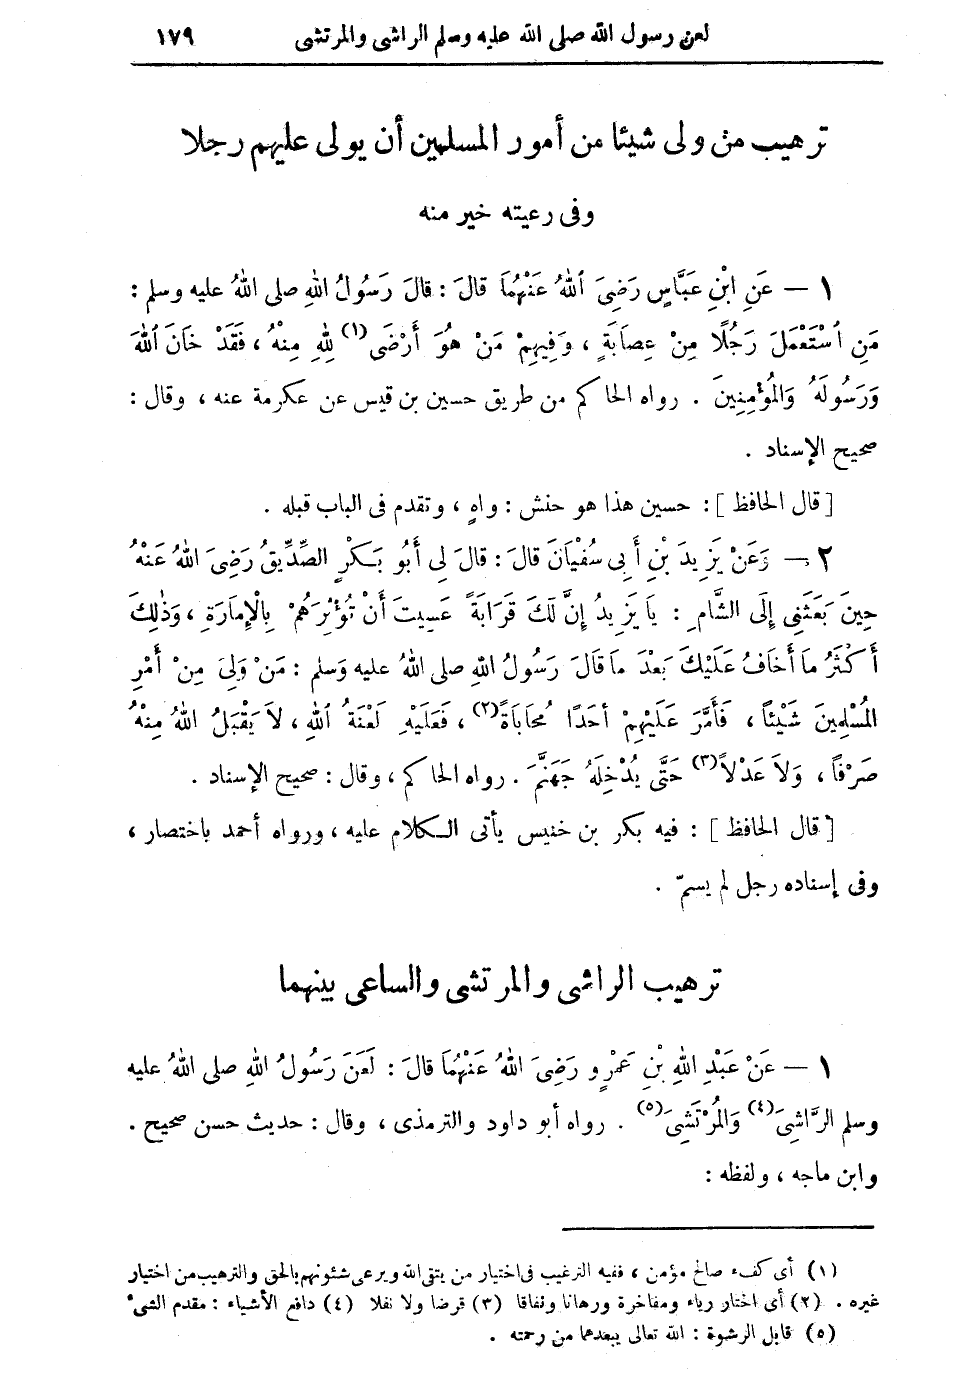 لعن رسول الله صلى الله عليه وسلم الراشى والمرتشى ١٧٩
ترهيب من ولى شيئا من أمور المسلمين أن يولى عليهم رجلا
وفى رعيته خير منه
١ — عَنِ ابْنِ عَبَّاسٍ رَضِىَ اللهُ عَنْهُمَا قالَ : قالَ رَسُولُ اللهِ صلى اللهُ عليه وسلم :
مَنِ اسْتَعْمَلَ رَجُلًا مِنْ عِصَابَةٍ ، وَفِيهِمْ مَنْ هُوَ أَرْضَى (١) لِلهِ مِنْهُ ، فَقَدْ خَانَ اللهَ
وَرَسُولَهُ وَالْمُؤْمِنِينَ . رواه الحاكم من طريق حسين بن قيس عن عكرمة عنه ، وقال :
صحيح الإسناد .
[ قال الحافظ ] : حسين هذا هو حنش : واهٍ ، وتقدم فى الباب قبله .
٢ — وَعَنْ يَزِيدَ بْنِ أَبِى سُفْيَانَ قالَ : قالَ لِى أَبُو بَكْرٍ الصِّدِّيقُ رَضِىَ اللهُ عَنْهُ
حِينَ بَعَثَنِى إِلَى الشَّامِ : يَا يَزِيدُ إِنَّ لَكَ قَرَابَةً عَسِيتَ أَنْ تُؤْثِرَهُمْ بِالْإِمَارَةِ ، وَذٰلِكَ
أَكْثَرُ مَا أَخَافُ عَلَيْكَ بَعْدَ مَا قَالَ رَسُولُ اللهِ صلى اللهُ عليه وَسلم : مَنْ وَلِىَ مِنْ أَمْرِ
الْمُسْلِمِينَ شَيْئًا ، فَأَمَّرَ عَلَيْهِمْ أَحَدًا مُحَابَاةً (٢) ، فَعَلَيْهِ لَعْنَةُ اللهِ ، لَا يَقْبَلُ اللهُ مِنْهُ
صَرْفًا ، وَلَا عَدْلًا (٣) حَتَّى يُدْخِلَهُ جَهَنَّمَ . رواه الحاكم ، وقال : صحيح الإسناد .
[ قال الحافظ ] : فيه بكر بن خنيس يأتى الكلام عليه ، ورواه أحمد باختصار ،
وفى إسناده رجل لم يسمّ .
ترهيب الراشى والمرتشى والساعى بينهما
١ — عَنْ عَبْدِ اللهِ بْنِ عَمْرٍو رَضِىَ اللهُ عَنْهُمَا قالَ : لَعَنَ رَسُولُ اللهِ صلى اللهُ عليه
وسلم الرَّاشِىَ (٤) وَالْمُرْتَشِىَ (٥) . رواه أبو داود والترمذى ، وقال : حديث حسن صحيح .
وابن ماجه ، ولفظه :
(١) أى كفء صالح مؤمن ، ففيه الترغيب فى اختيار من يتقى الله ويرعى شئونهم بالحق والترهيب من اختيار
غيره . (٢) أى اختار رياء ومفاخرة ورهانا ونفاقا (٣) فرضا ولا نفلا (٤) دافع الأشياء : مقدم الشىء
(٥) قابل الرشوة : الله تعالى يبعدهما من رحمته .